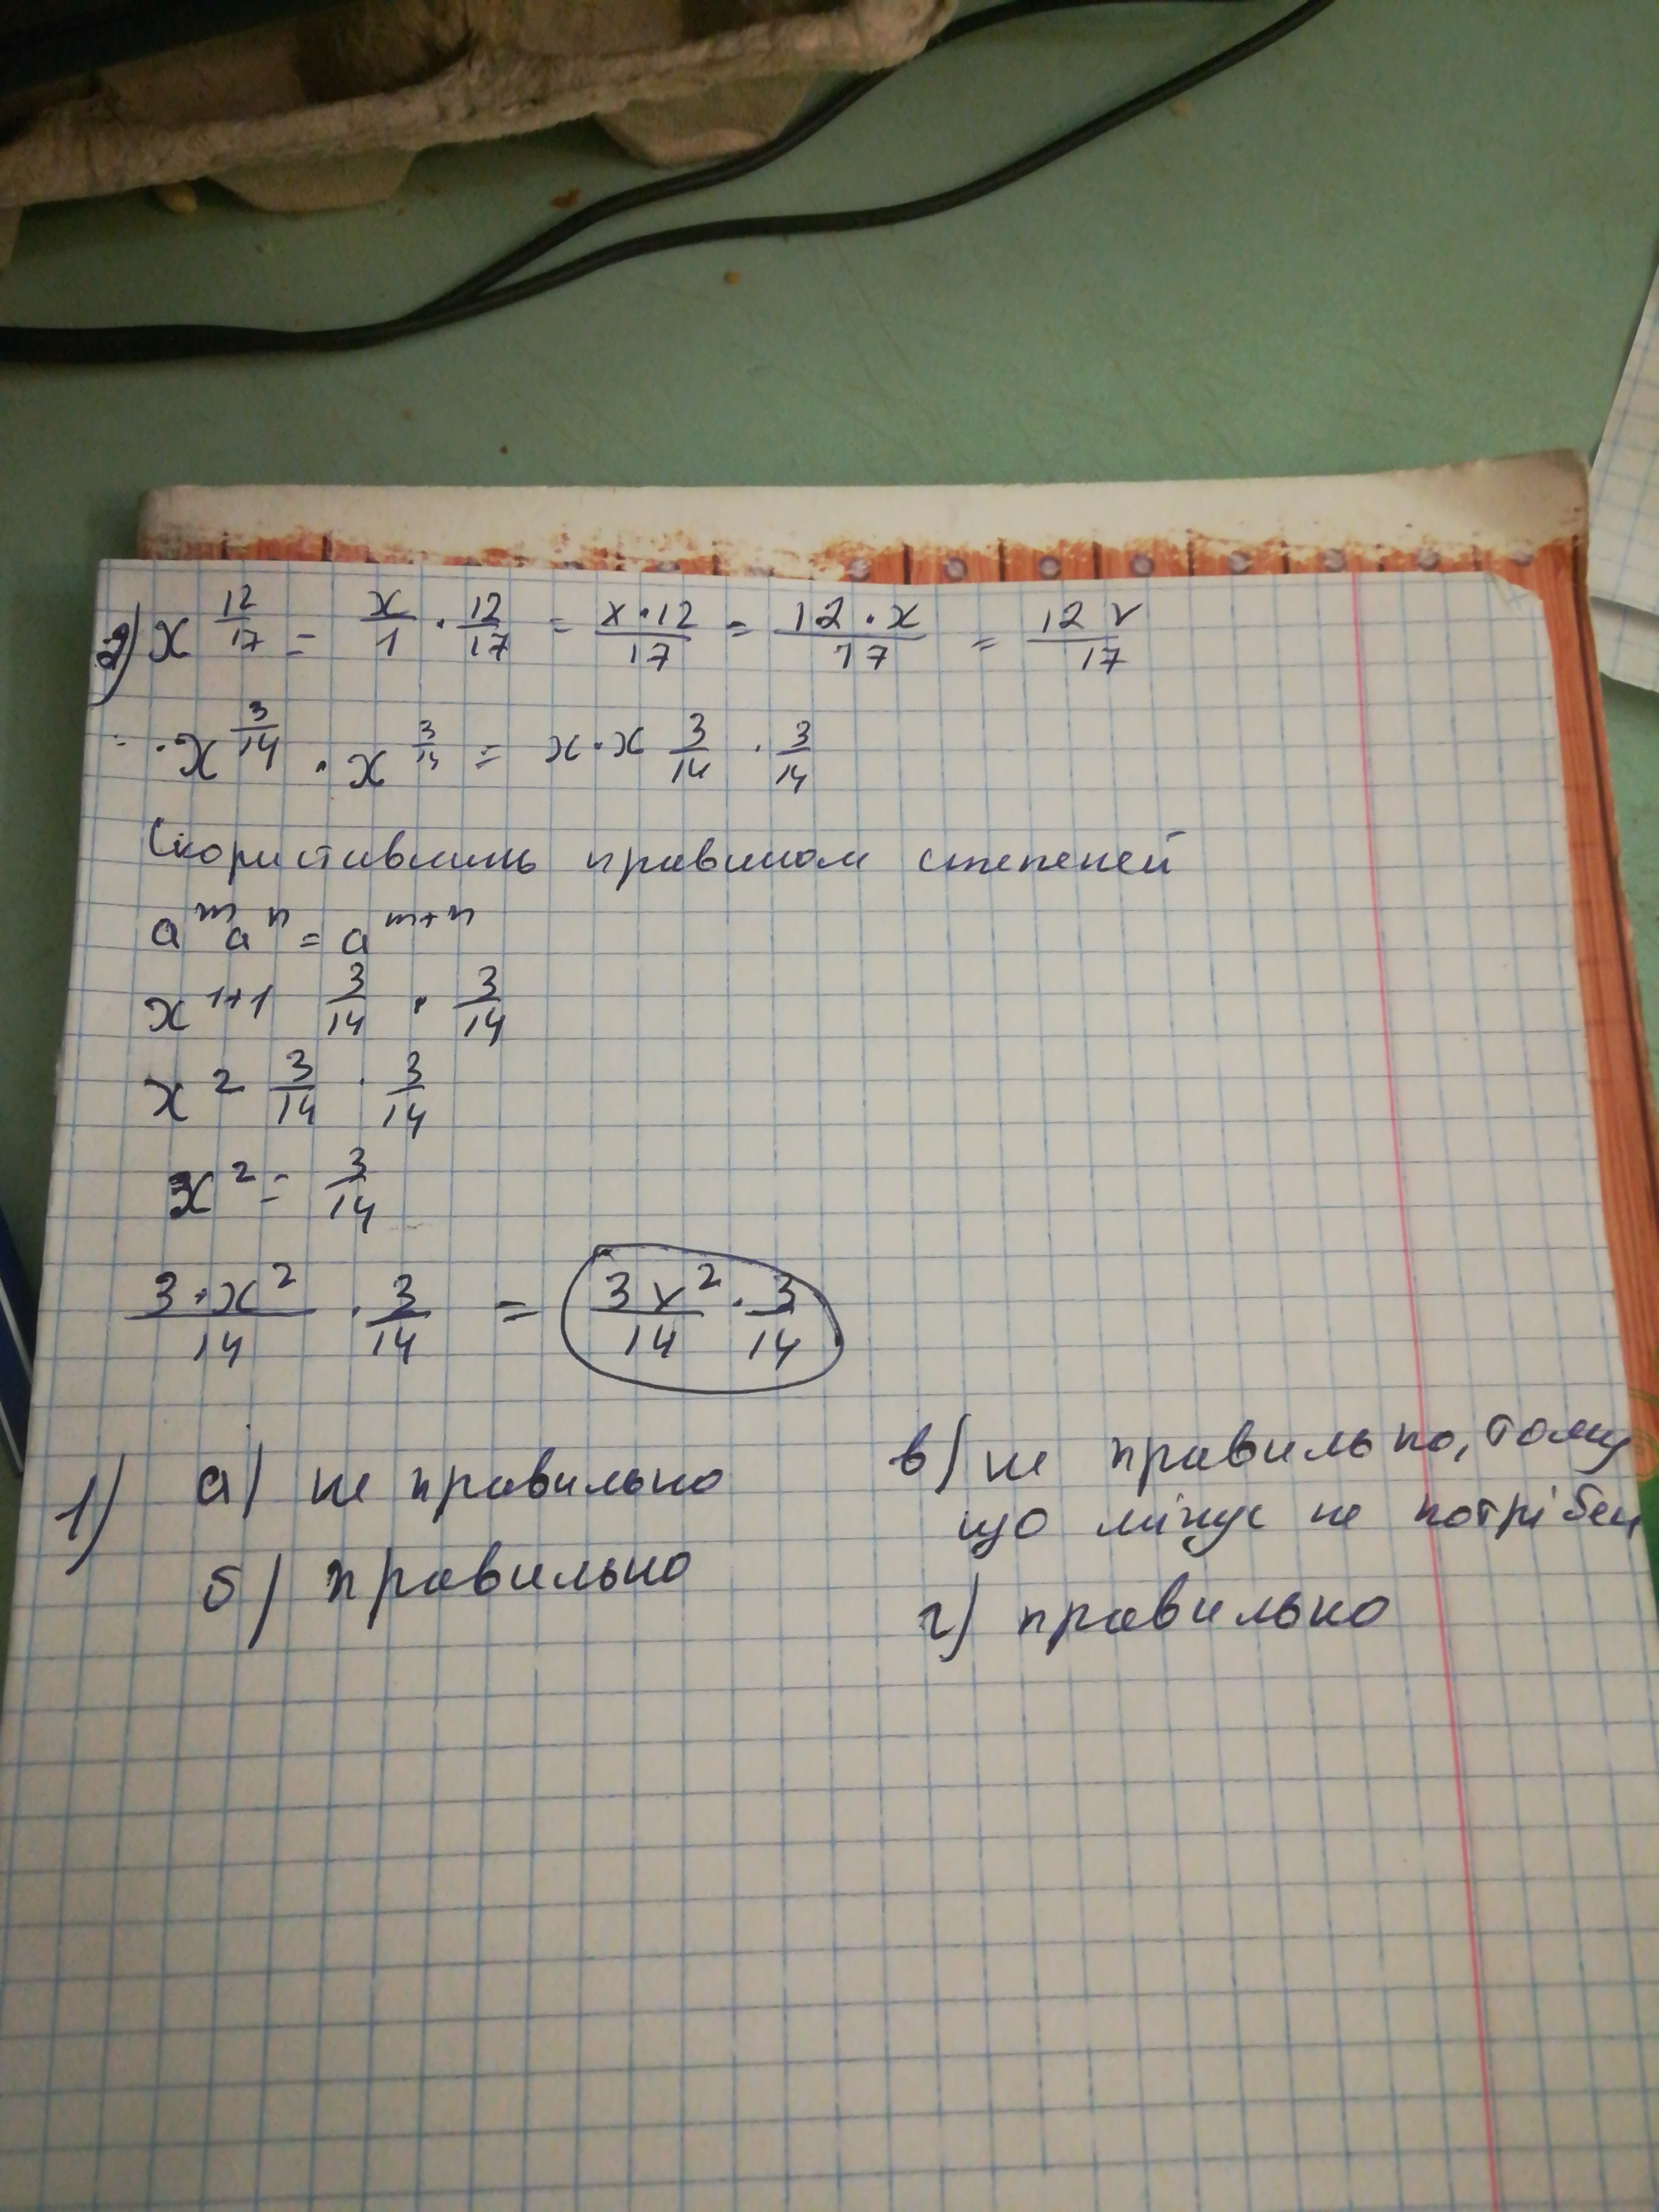 2) x^(12/17) = x/1 · 12/17 = x·12/17 = 12·x/17 = 12x/17
· x^(3/14) · x^(3/14) = x·x 3/14 · 3/14
Скориставшись правилом степеней
a^m a^n = a^(m+n)
x^(1+1) 3/14 · 3/14
x^2 3/14 · 3/14
x^2 = 3/14
3·x^2/14 · 3/14 = 3x^2/14 · 3/14
1) а) не правильно
б) правильно
в) не правильно, тому
що мінус не потрібен
г) правильно